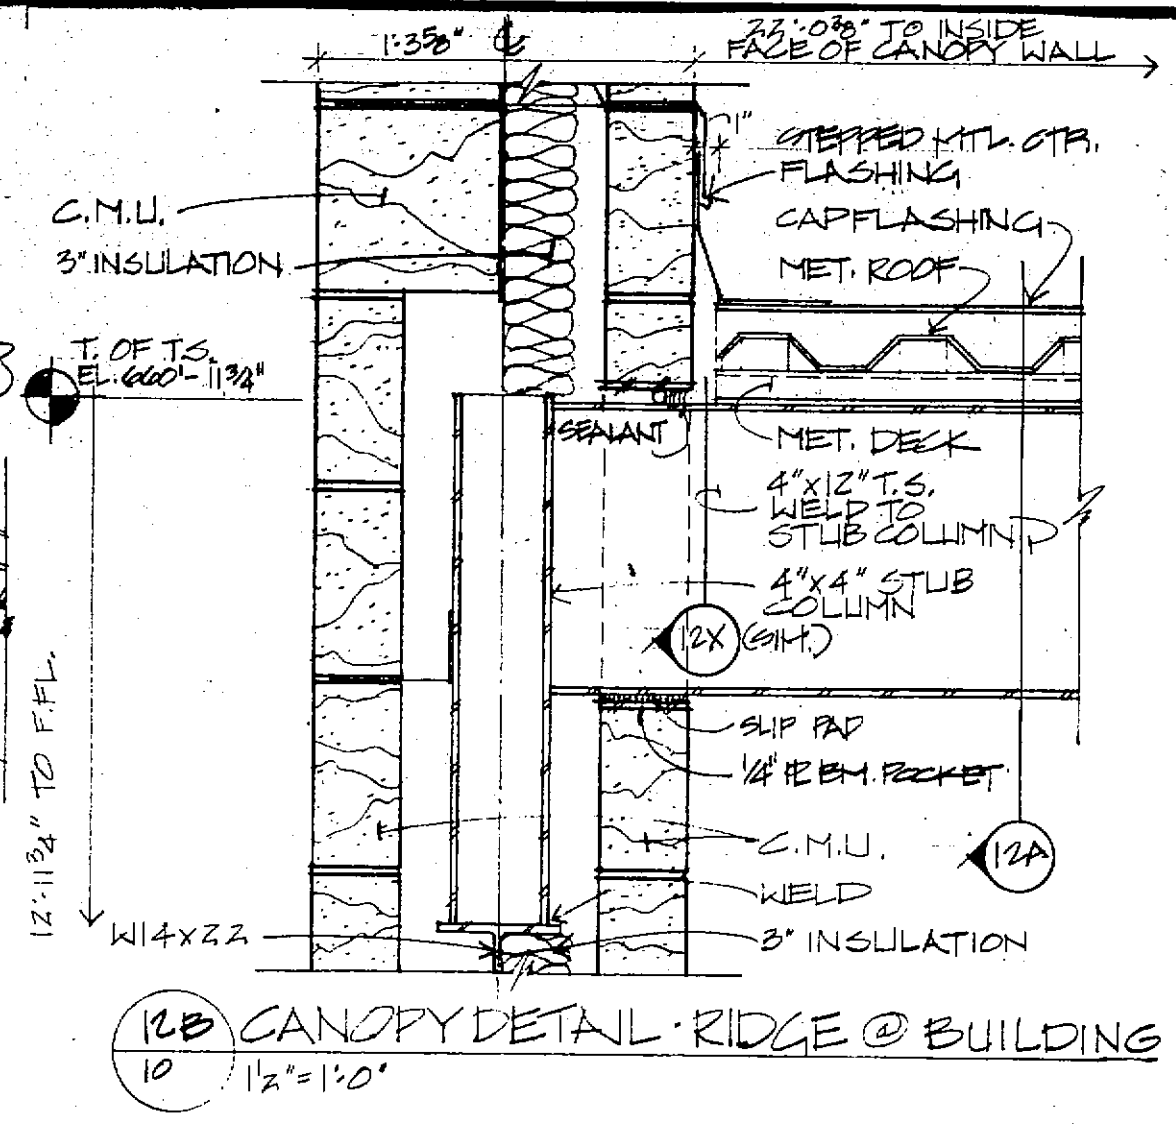 1'-3 5/8"
22'-0 3/8" TO INSIDE
FACE OF CANOPY WALL
1"
STEPPED MTL. CTR.
FLASHING
CAP FLASHING
MET. ROOF
C.M.U.
3" INSULATION
T. OF T.S.
EL. 660'-11 3/4"
SEALANT
MET. DECK
4"x12" T.S.
WELD TO
STUB COLUMN
4"x4" STUB
COLUMN
12X (SIM.)
SLIP PAD
1/4" PL BM. POCKET
12'-11 3/4" TO F.FL.
C.M.U.
12A
WELD
W14x22
3" INSULATION
12B CANOPY DETAIL · RIDGE @ BUILDING
10 1 1/2"=1'-0"